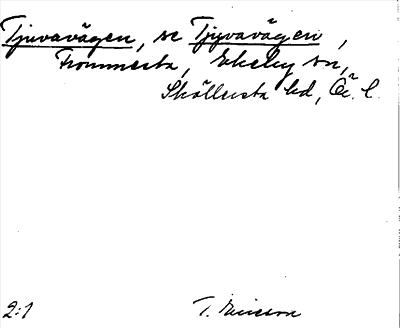 Tjuvavägen, se Tjyvavägen,
Frommesta, Ekeby sn,
Sköllersta hd, Ör. l.
2:1 T. Ericson